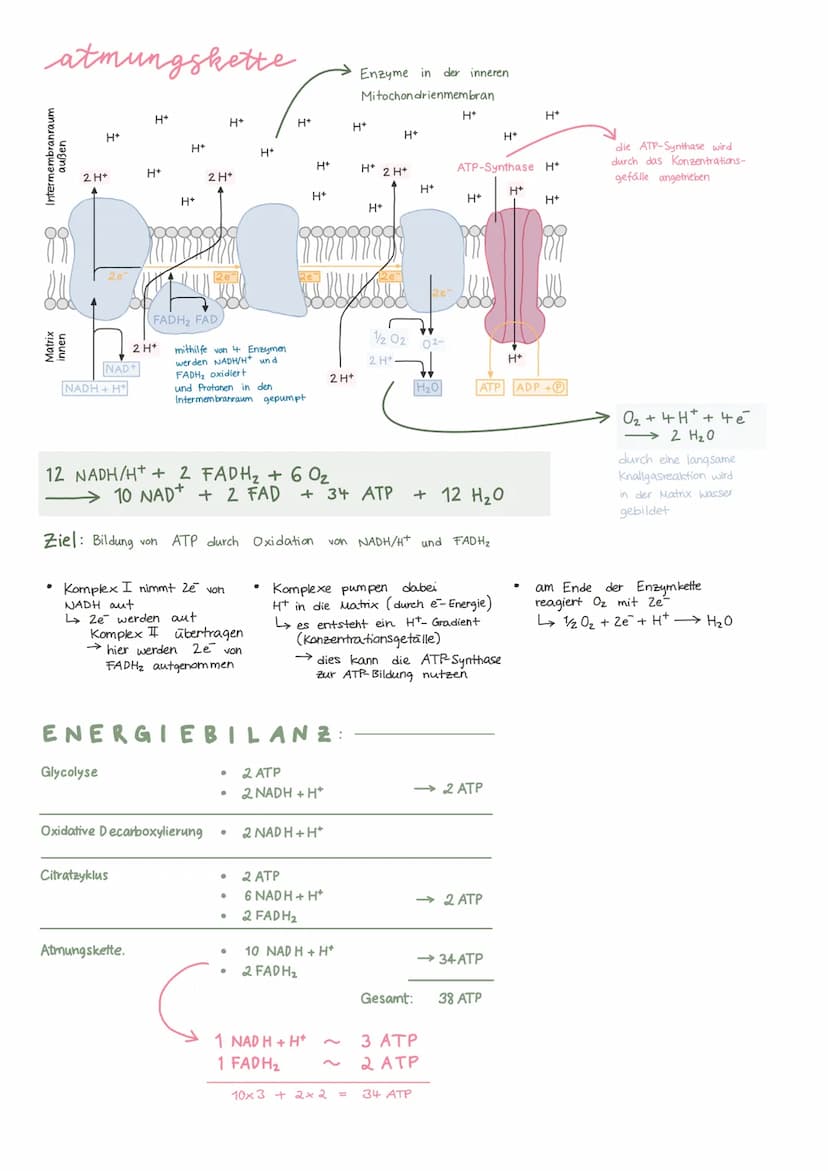 atmungskette
Enzyme in der inneren
Mitochondrienmembran
Intermembranraum
außen
H⁺ H⁺ H⁺ H⁺ H⁺ H⁺
H⁺ H⁺ H⁺
H⁺ H⁺
die ATP-Synthase wird
durch das Konzentrations-
gefälle angetrieben
2 H⁺ H⁺ 2 H⁺ H⁺ H⁺ 2 H⁺ ATP-Synthase H⁺
H⁺ H⁺ H⁺ H⁺ H⁺ H⁺ H⁺
2e⁻ 2e⁻ 2e⁻ 2e⁻ 2e⁻
FADH₂ FAD
Matrix
innen
2 H⁺
NAD⁺
NADH + H⁺
mithilfe von 4 Enzymen
werden NADH/H⁺ und
FADH₂ oxidiert
und Protonen in den
Intermembranraum gepumpt
2 H⁺
½ O₂ O²⁻
2 H⁺
H₂O
H⁺
ATP ADP + P
O₂ + 4H⁺ + 4e⁻
⟶ 2 H₂O
durch eine langsame
Knallgasreaktion wird
in der Matrix Wasser
gebildet
12 NADH/H⁺ + 2 FADH₂ + 6 O₂
⟶ 10 NAD⁺ + 2 FAD + 34 ATP + 12 H₂O
Ziel: Bildung von ATP durch Oxidation von NADH/H⁺ und FADH₂
• Komplex I nimmt 2e⁻ von
NADH auf
↳ 2e⁻ werden auf
Komplex II übertragen
→ hier werden 2e⁻ von
FADH₂ aufgenommen
• Komplexe pumpen dabei
H⁺ in die Matrix (durch e⁻-Energie)
↳ es entsteht ein H⁺- Gradient
(Konzentrationsgefälle)
→ dies kann die ATP-Synthase
zur ATP-Bildung nutzen
• am Ende der Enzymkette
reagiert O₂ mit 2e⁻
↳ ½ O₂ + 2e⁻ + H⁺ ⟶ H₂O
ENERGIEBILANZ:
Glycolyse • 2 ATP
• 2 NADH + H⁺ → 2 ATP
Oxidative Decarboxylierung • 2 NADH + H⁺
Citratzyklus • 2 ATP
• 6 NADH + H⁺ → 2 ATP
• 2 FADH₂
Atmungskette. • 10 NADH + H⁺ → 34 ATP
• 2 FADH₂
Gesamt: 38 ATP
1 NADH + H⁺ ~ 3 ATP
1 FADH₂ ~ 2 ATP
10x3 + 2x2 = 34 ATP